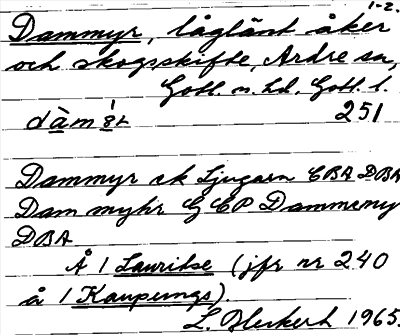 1-2.
Dammyr, låglänt åker
och skogsskifte, Ardre sn,
Gotl. n. hd, Gotl. l.
dàm 251
Dammyr ek Ljugarn EBA DBA
Dam myhr G EP Dammemy
DBA
Å 1 Lauritse (jfr nr 240
å 1 Kaupungs).
L. 1965.